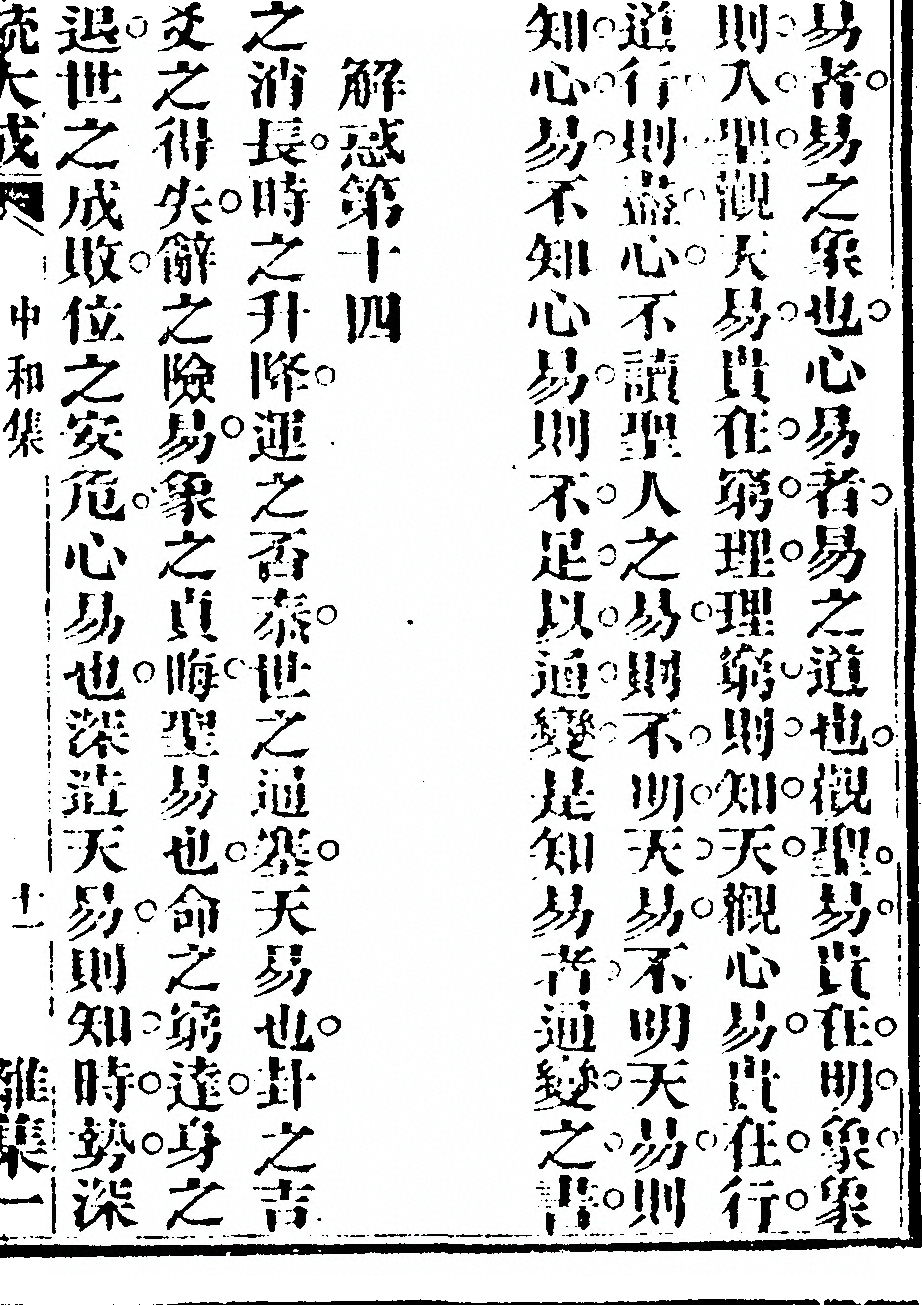 易者易之象也心易者易之道也觀聖易貴在明象象
則入聖觀天易貴在窮理理窮則知天觀心易貴在行
道行則盡心不讀聖人之易則不明天易不明天易則
知心易不知心易則不足以通變是知易者通變之書
解惑第十四
之消長時之升降運之否泰世之通塞天易也卦之吉
爻之得失辭之險易象之貞晦聖易也命之窮達身之
退世之成敗位之安危心易也深造天易則知時勢深
大成
中和集
十一
雜集一